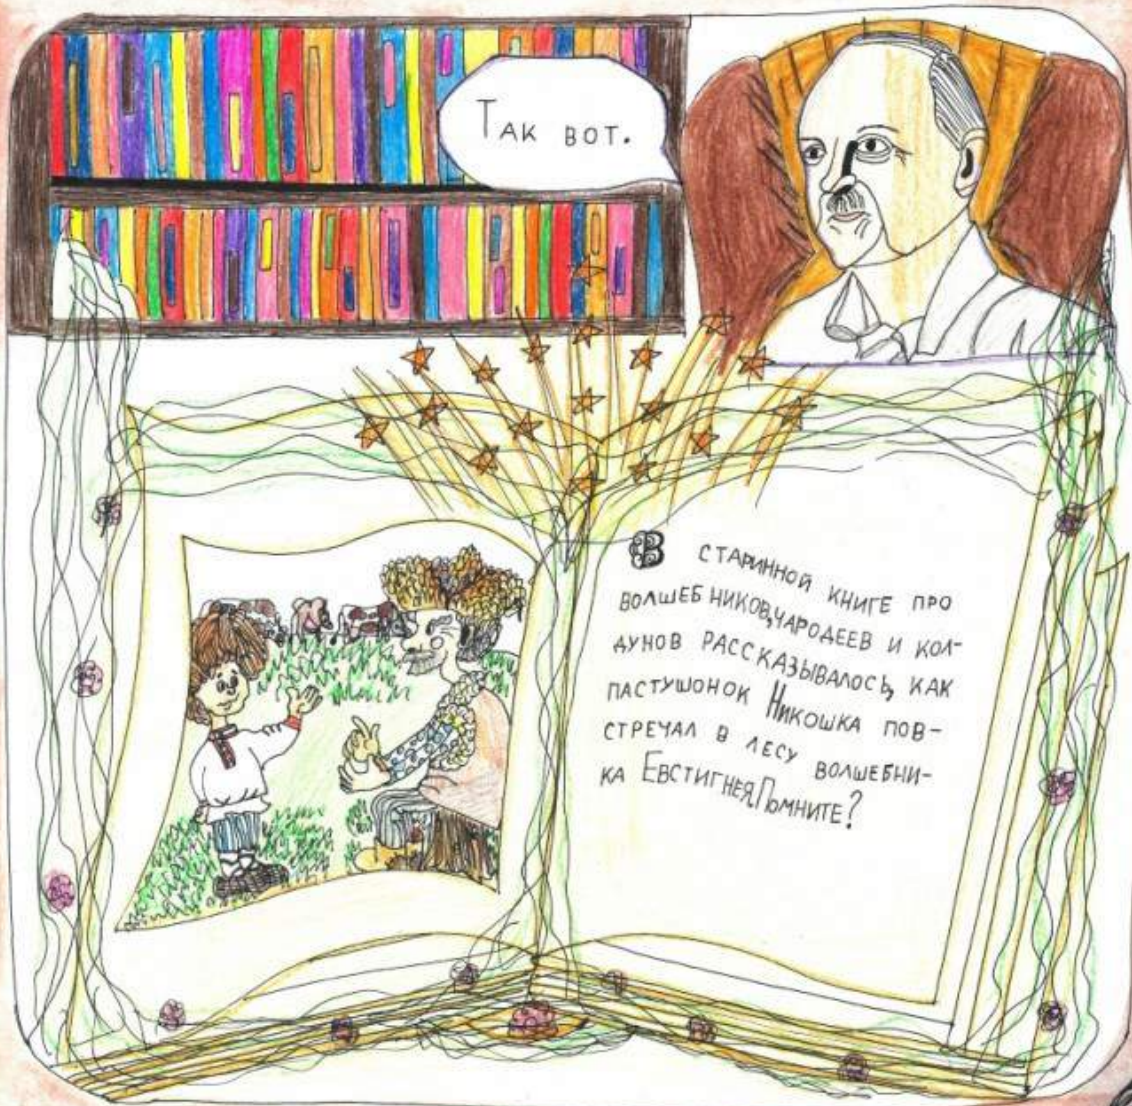 Так вот.
В старинной книге про
волшебников, чародеев и кол-
дунов рассказывалось, как
пастушонок Никошка пов-
стречал в лесу волшебни-
ка Евстигнея. Помните?